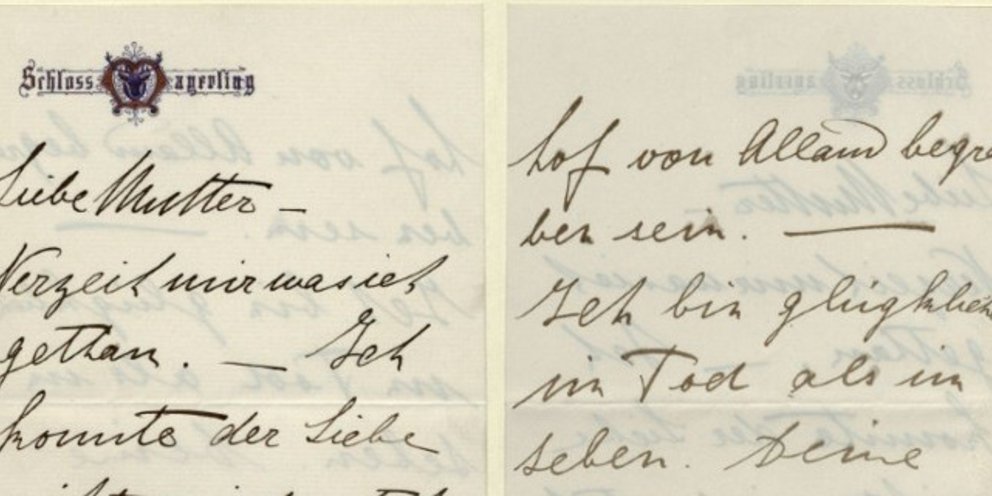 Schloss Mayerling
Liebe Mutter –
Verzeih mir was ich
gethan. – Ich
konnte der Liebe
hof von Alland begra
ben sein. —
Ich bin glüglich
im Tod als im
Leben. Deine